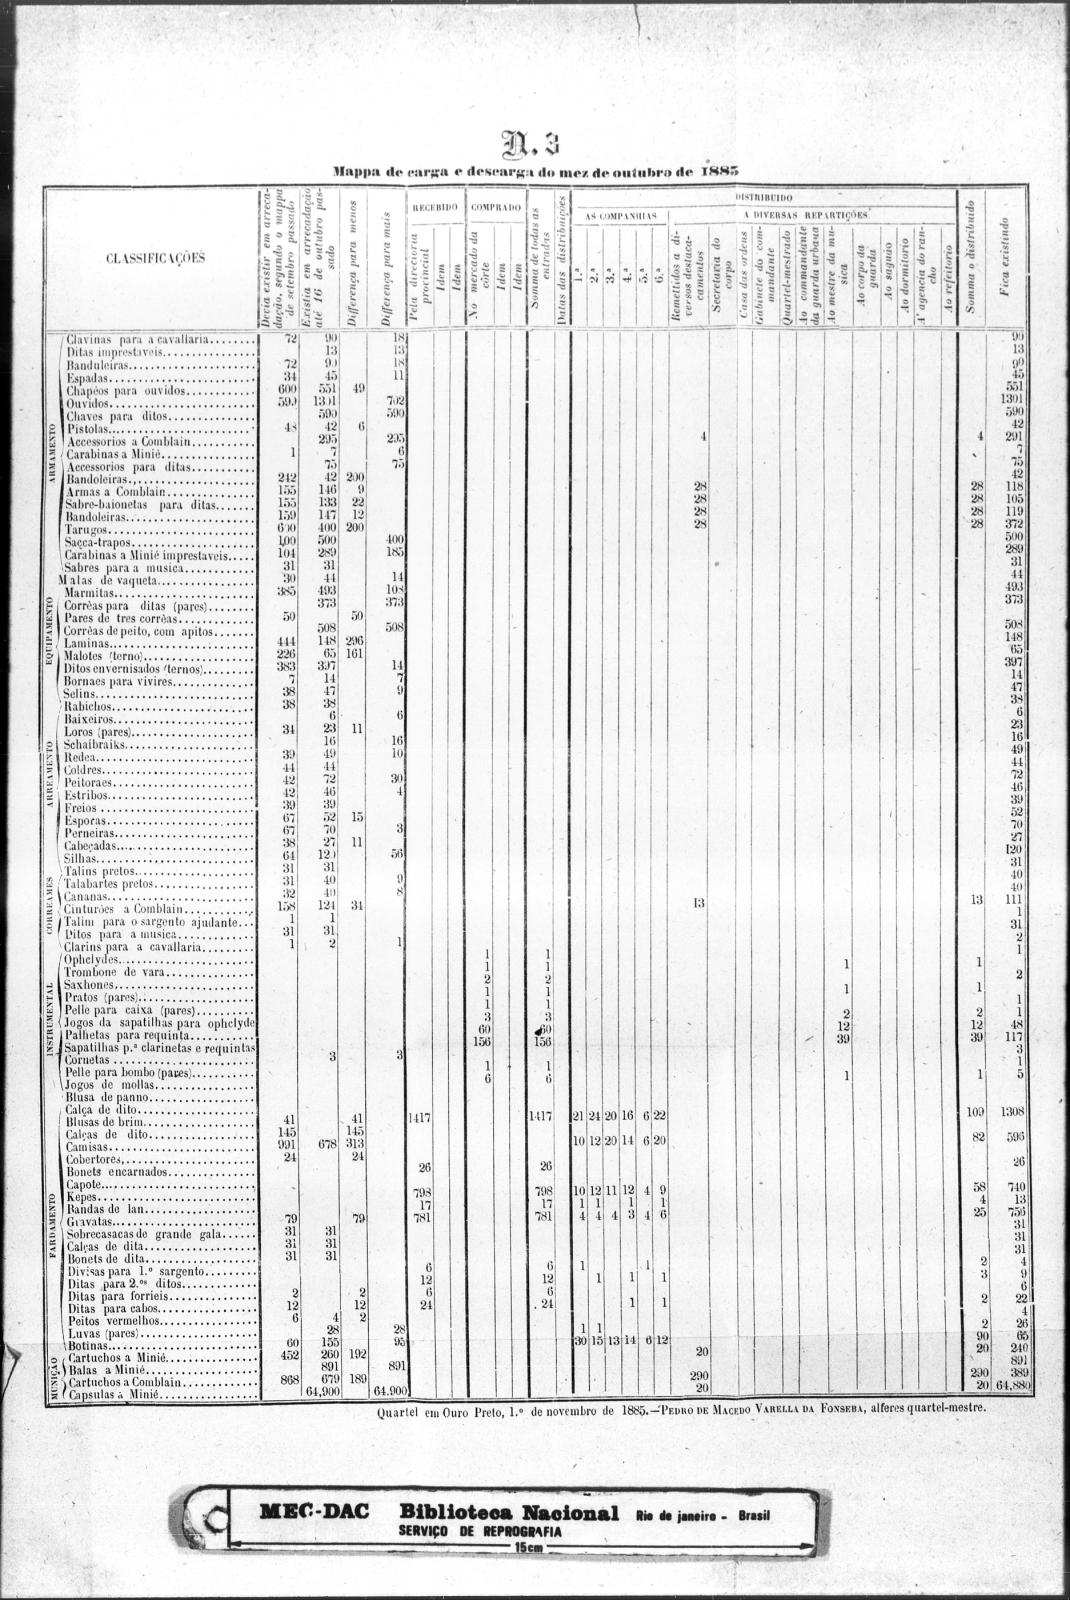 N. 3
Mappa de carga e descarga do mez de outubro de 1885
CLASSIFICAÇÕES
Devia existir em arrecadação, segundo o mappa de setembro passado
Existia em arrecadação até 16 de outubro passado
Differença para menos
Differença para mais
RECEBIDO
Pela directoria provincial
Idem
Idem
COMPRADO
No mercado da côrte
Idem
Idem
Somma de todas as entradas
Datas das distribuições
DISTRIBUIDO
AS COMPANHIAS
1.ª
2.ª
3.ª
4.ª
5.ª
6.ª
A DIVERSAS REPARTIÇÕES
Remettidos a diversos destacamentos
Secretaria do corpo
Casa das ordens
Gabinete do commandante
Quartel-mestrado
Ao commandante da guarda urbana
Ao mestre da musica
Ao corpo da guarda
Ao saguão
Ao dormitorio
A' agencia do rancho
Ao refeitorio
Somma o distribuido
Fica existindo
ARMAMENTO
Clavinas para a cavallaria 72 90 18 90
Ditas imprestaveis 13 13 13
Banduleiras 72 90 18 90
Espadas 34 45 11 45
Chapéos para ouvidos 600 551 49 551
Ouvidos 599 1301 702 1301
Chaves para ditos 590 590 590
Pistolas 48 42 6 42
Accessorios a Comblain 295 295 4 4 291
Carabinas a Minié 1 7 6 7
Accessorios para ditas 75 75 75
Bandoleiras 242 42 200 42
Armas a Comblain 155 146 9 28 28 118
Sabre-baionetas para ditas 155 133 22 28 28 105
Bandoleiras 159 147 12 28 28 119
Tarugos 600 400 200 28 28 372
Sacca-trapos 100 500 400 500
Carabinas a Minié imprestaveis 104 289 185 289
Sabres para a musica 31 31 31
EQUIPAMENTO
Malas de vaqueta 30 44 14 44
Marmitas 385 493 108 493
Corrêas para ditas (pares) 373 373 373
Pares de tres corrêas 50 50
Corrêas de peito, com apitos 508 508 508
Laminas 444 148 296 148
Malotes (terno) 226 65 161 65
Ditos envernisados (ternos) 383 397 14 397
Bornaes para viveres 7 14 7 14
ARREAMENTO
Selins 38 47 9 47
Rabichos 38 38 38
Baixeiros 6 6 6
Loros (pares) 34 23 11 23
Schaibraiks 16 16 16
Redea 39 49 10 49
Coldres 44 44 44
Peitoraes 42 72 30 72
Estribos 42 46 4 46
Freios 39 39 39
Esporas 67 52 15 52
Perneiras 67 70 3 70
Cabeçadas 38 27 11 27
Silhas 64 120 56 120
CORREAMES
Talins pretos 31 31 31
Talabartes pretos 31 40 9 40
Cananas 32 40 8 40
Cinturões a Comblain 158 124 34 13 13 111
Talim para o sargento ajudante 1 1 1
Ditos para a musica 31 31 31
INSTRUMENTAL
Clarins para a cavallaria 1 2 1 2
Ophclydes 1 1 1
Trombone de vara 1 1 1 1
Saxhones 2 2 2
Pratos (pares) 1 1 1 1
Pelle para caixa (pares) 1 1 1
Jogos da sapatilhas para ophclyde 3 3 2 2 1
Palhetas para requinta 60 60 12 12 48
Sapatilhas p.ª clarinetas e requintas 156 156 39 39 117
Cornetas 3 3 3
Pelle para bombo (pares) 1 1 1
Jogos de mollas 6 6 1 1 5
FARDAMENTO
Blusa de panno
Calça de dito
Blusas de brim 41 41 1417 1417 21 24 20 16 6 22 109 1308
Calças de dito 145 145
Camisas 991 678 313 10 12 20 14 6 20 82 596
Cobertores 24 24
Bonets encarnados 26 26 26
Capote
Kepes 798 798 10 12 11 12 4 9 58 740
Randas de lan 17 17 1 1 1 1 4 13
Gravatas 79 79 781 781 4 4 4 3 4 6 25 756
Sobrecasacas de grande gala 31 31 31
Calças de dita 31 31 31
Bonets de dita 31 31 31
Divisas para 1.º sargento 6 6 1 1 2 4
Ditas para 2.ºs ditos 12 12 1 1 1 3 9
Ditas para forrieis 2 2 6 6 6
Ditas para cabos 12 12 24 24 1 1 2 22
Peitos vermelhos 6 4 2 4
Luvas (pares) 28 28 1 1 2 26
Botinas 60 155 95 30 15 13 14 6 12 90 65
MUNIÇÃO
Cartuchos a Minié 452 260 192 20 20 240
Balas a Minié 891 891 891
Cartuchos a Comblain 868 679 189 290 290 389
Capsulas a Minié 64,900 64.900 20 20 64,880
Quartel em Ouro Preto, 1.º de novembro de 1885.—PEDRO DE MACEDO VARELLA DA FONSEBA, alferes quartel-mestre.
MEC-DAC Biblioteca Nacional Rio de janeiro - Brasil
SERVIÇO DE REPROGRAFIA
15cm